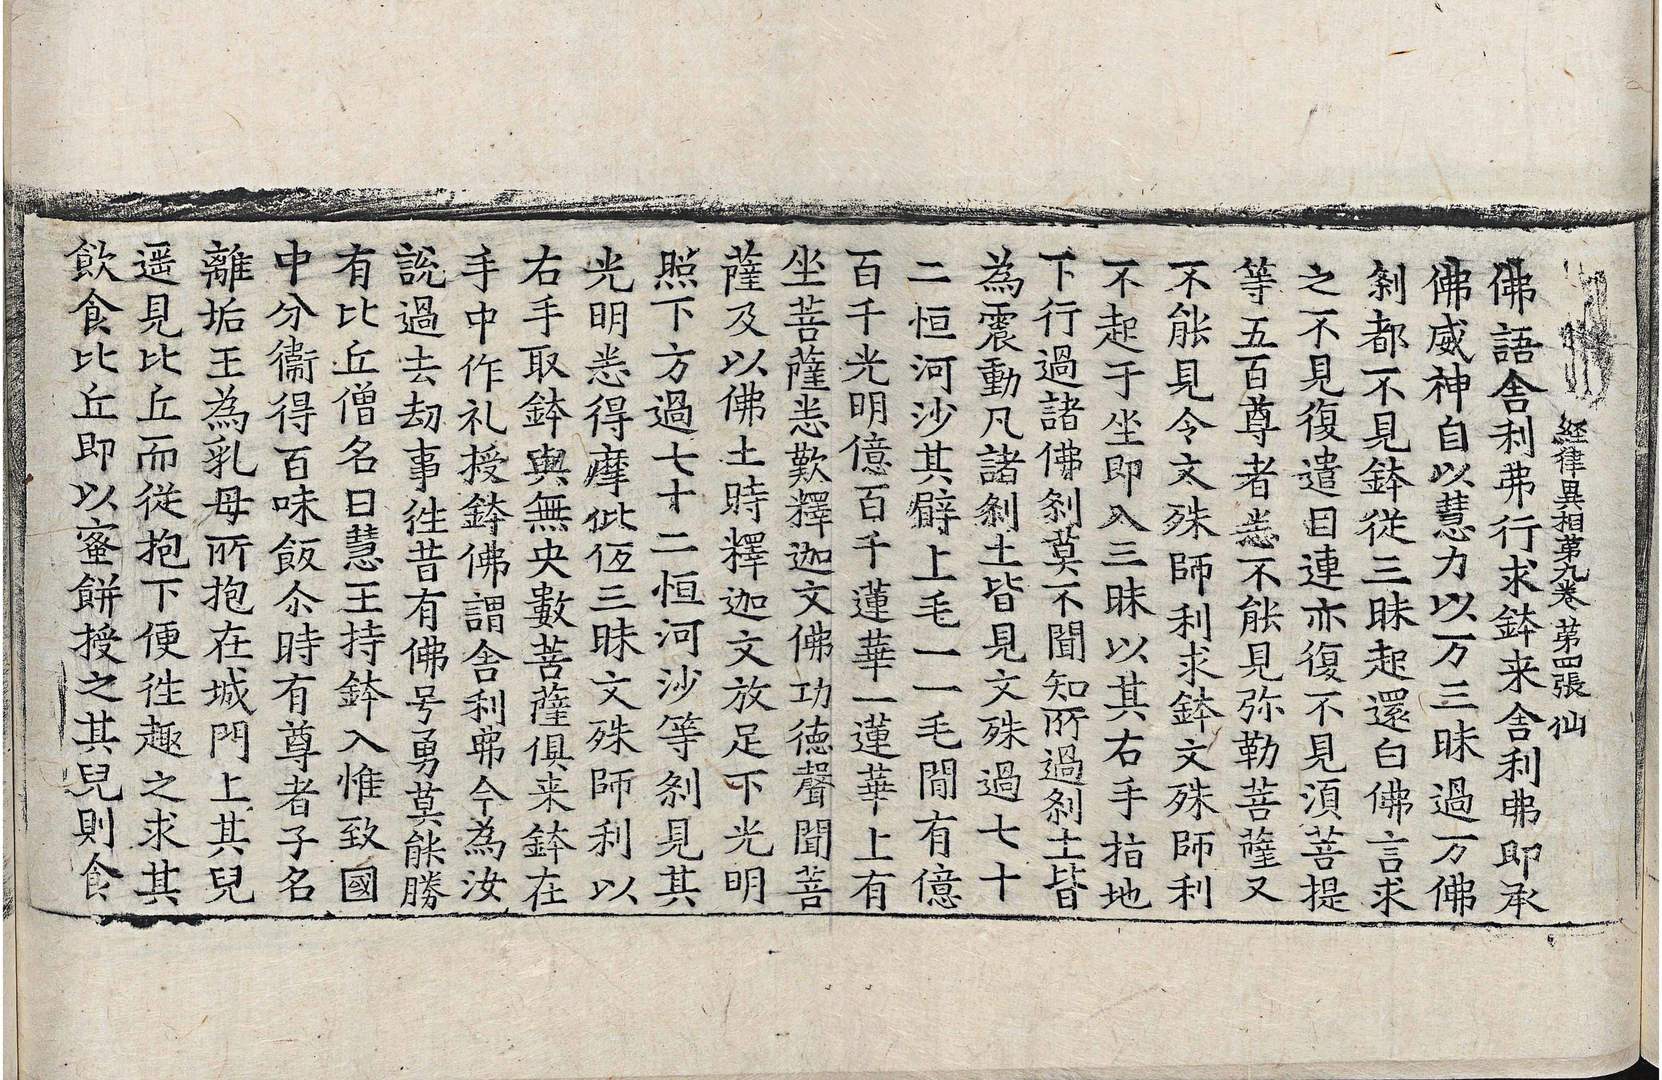 經律異相第九卷 第四張 仙
佛語舍利弗行求鉢来舍利弗即承
佛威神自以慧力以万三昧過万佛
刹都不見鉢從三昧起還白佛言求
之不見復遣目連亦復不見須菩提
等五百尊者悉不能見弥勒菩薩又
不能見令文殊師利求鉢文殊師利
不起于坐即入三昧以其右手指地
下行過諸佛刹莫不聞知所過刹土皆
為震動凡諸刹土皆見文殊過七十
二恒河沙其臂上毛一一毛間有億
百千光明億百千蓮華一蓮華上有
坐菩薩悉歎釋迦文佛功德聲聞菩
薩及以佛土時釋迦文放足下光明
照下方過七十二恒河沙等刹見其
光明悉得摩呲伍三昧文殊師利以
右手取鉢與無央數菩薩俱来鉢在
手中作礼授鉢佛謂舍利弗今為汝
說過去劫事徃昔有佛号勇莫能勝
有比丘僧名曰慧王持鉢入惟致國
中分衞得百味飯尒時有尊者子名
離垢王為乳母所抱在城門上其兒
遥見比丘而從抱下便徃趣之求其
飲食比丘即以蜜餅授之其兒則食